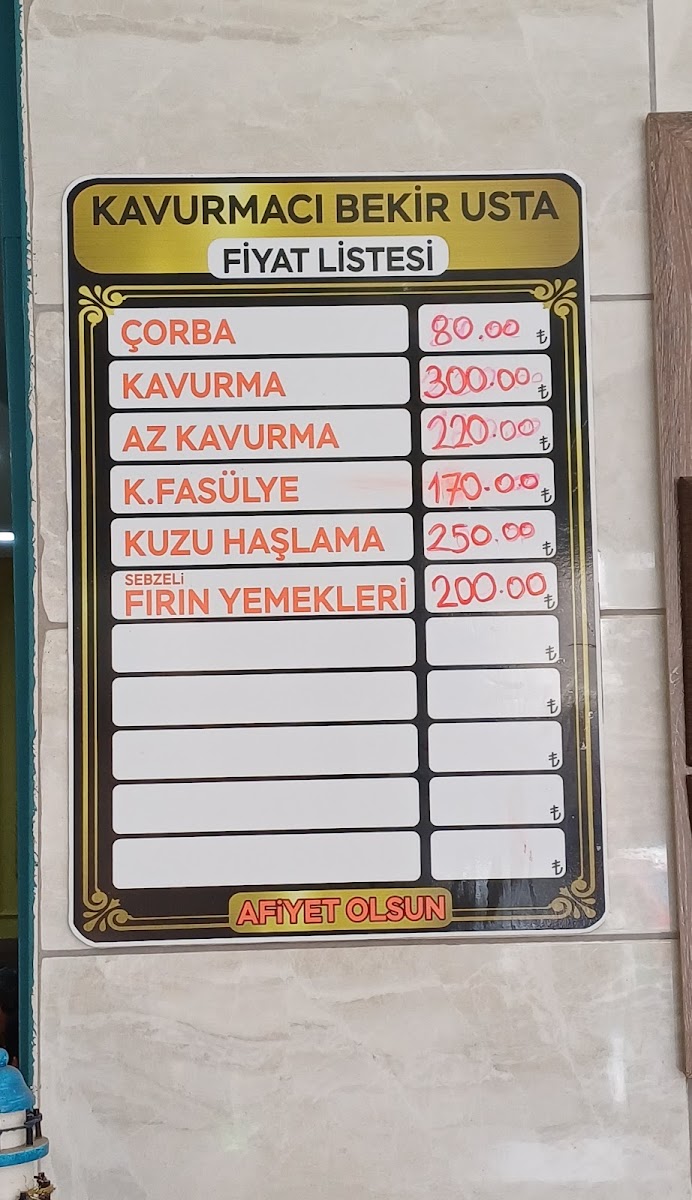 KAVURMACI BEKİR USTA
FİYAT LİSTESİ
ÇORBA 80.00 ₺
KAVURMA 300.00 ₺
AZ KAVURMA 220.00 ₺
K.FASÜLYE 170.00 ₺
KUZU HAŞLAMA 250.00 ₺
SEBZELİ
FIRIN YEMEKLERİ 200.00 ₺
₺
₺
₺
₺
₺
AFİYET OLSUN